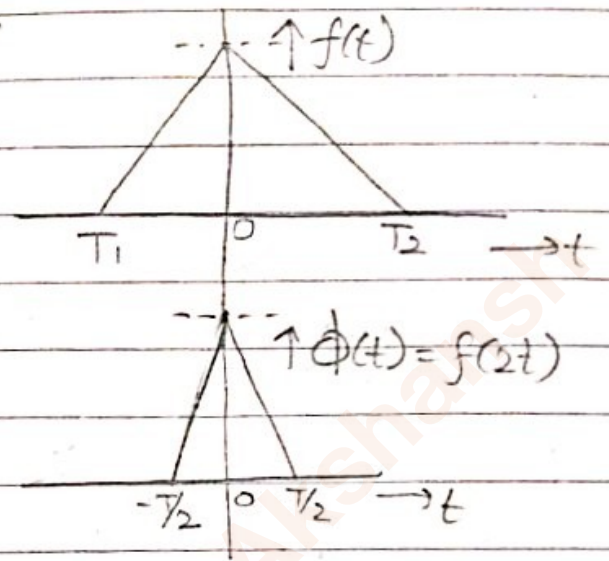 ↑ f(t)
T₁ 0 T₂ → t
↑ ϕ(t) = f(2t)
-T/2 0 T/2 → t
Akshansh